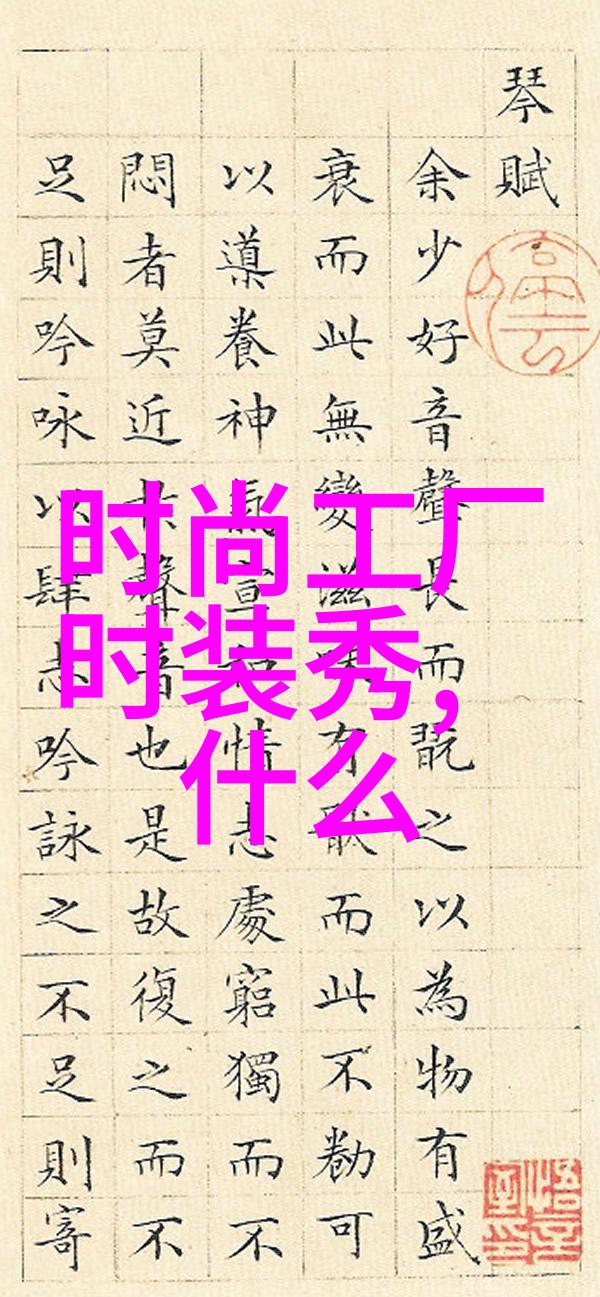 琴賦
余少好音聲長而翫之以為物有盛
衰而此無變滋味有猒而此不勌可
以導養神氣宣和情志處窮獨而不
悶者莫近聲音也是故復之而不
足則吟咏以肆志吟詠之不足則寄
时尚工厂
时装秀,
什么